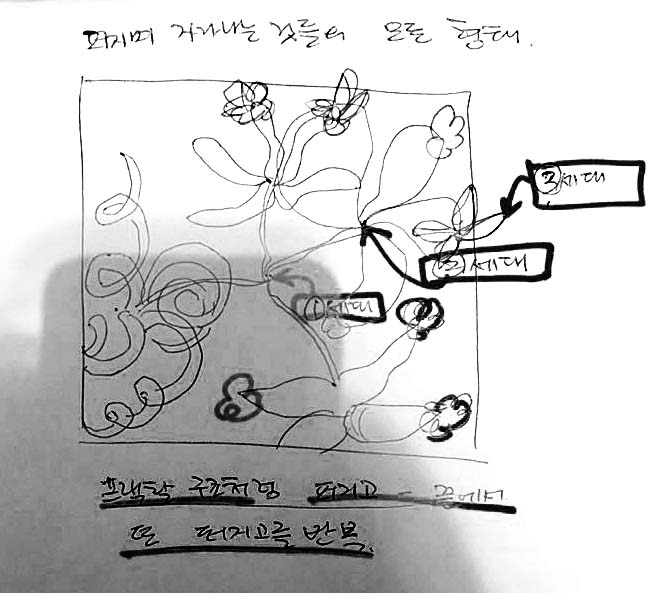 퍼지며 자라나는 것들의 모든 형태.
③세대
②세대
①세대
프랙탈 구조처럼 퍼지고 - 끝에서
또 퍼지고를 반복.